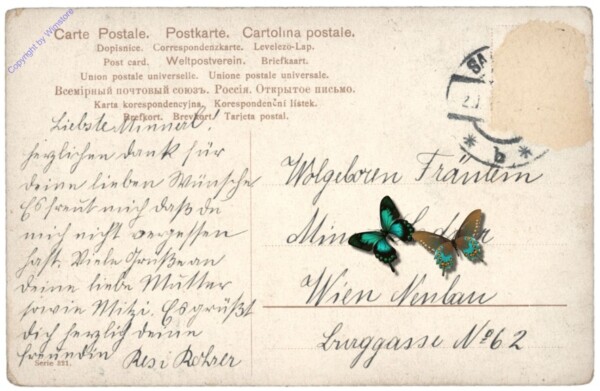 Copyright by Wimstore
Carte Postale. Postkarte. Cartolina postale.
Dopisnice. Correspondenzkarte. Levelezö-Lap.
Post card. Weltpostverein. Briefkaart.
Union postale universelle. Unione postale universale.
Всемірный почтовый союзъ. Россія. Открытое письмо.
Karta korespondencyjna. Korespondenční lístek.
Brefkort. Brevkort. Tarjeta postal.
Liebste Minnerl!
herzlichen dank für
deine lieben Wünsche
Es freut mich daß du
mich nicht vergessen
hast. Viele Grüße an
deine liebe Mutter
sowie Mitzi. Es grüßt
dich herzlich deine
freundin Resi Rohrer
Serie 221.
Wolgeboren Fräulein
Wien Neubau
Burggasse No 62
SA
2.
b